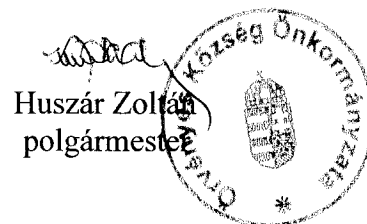 Huszár Zoltán
polgármester
Örvényes Község Önkormányzata
*